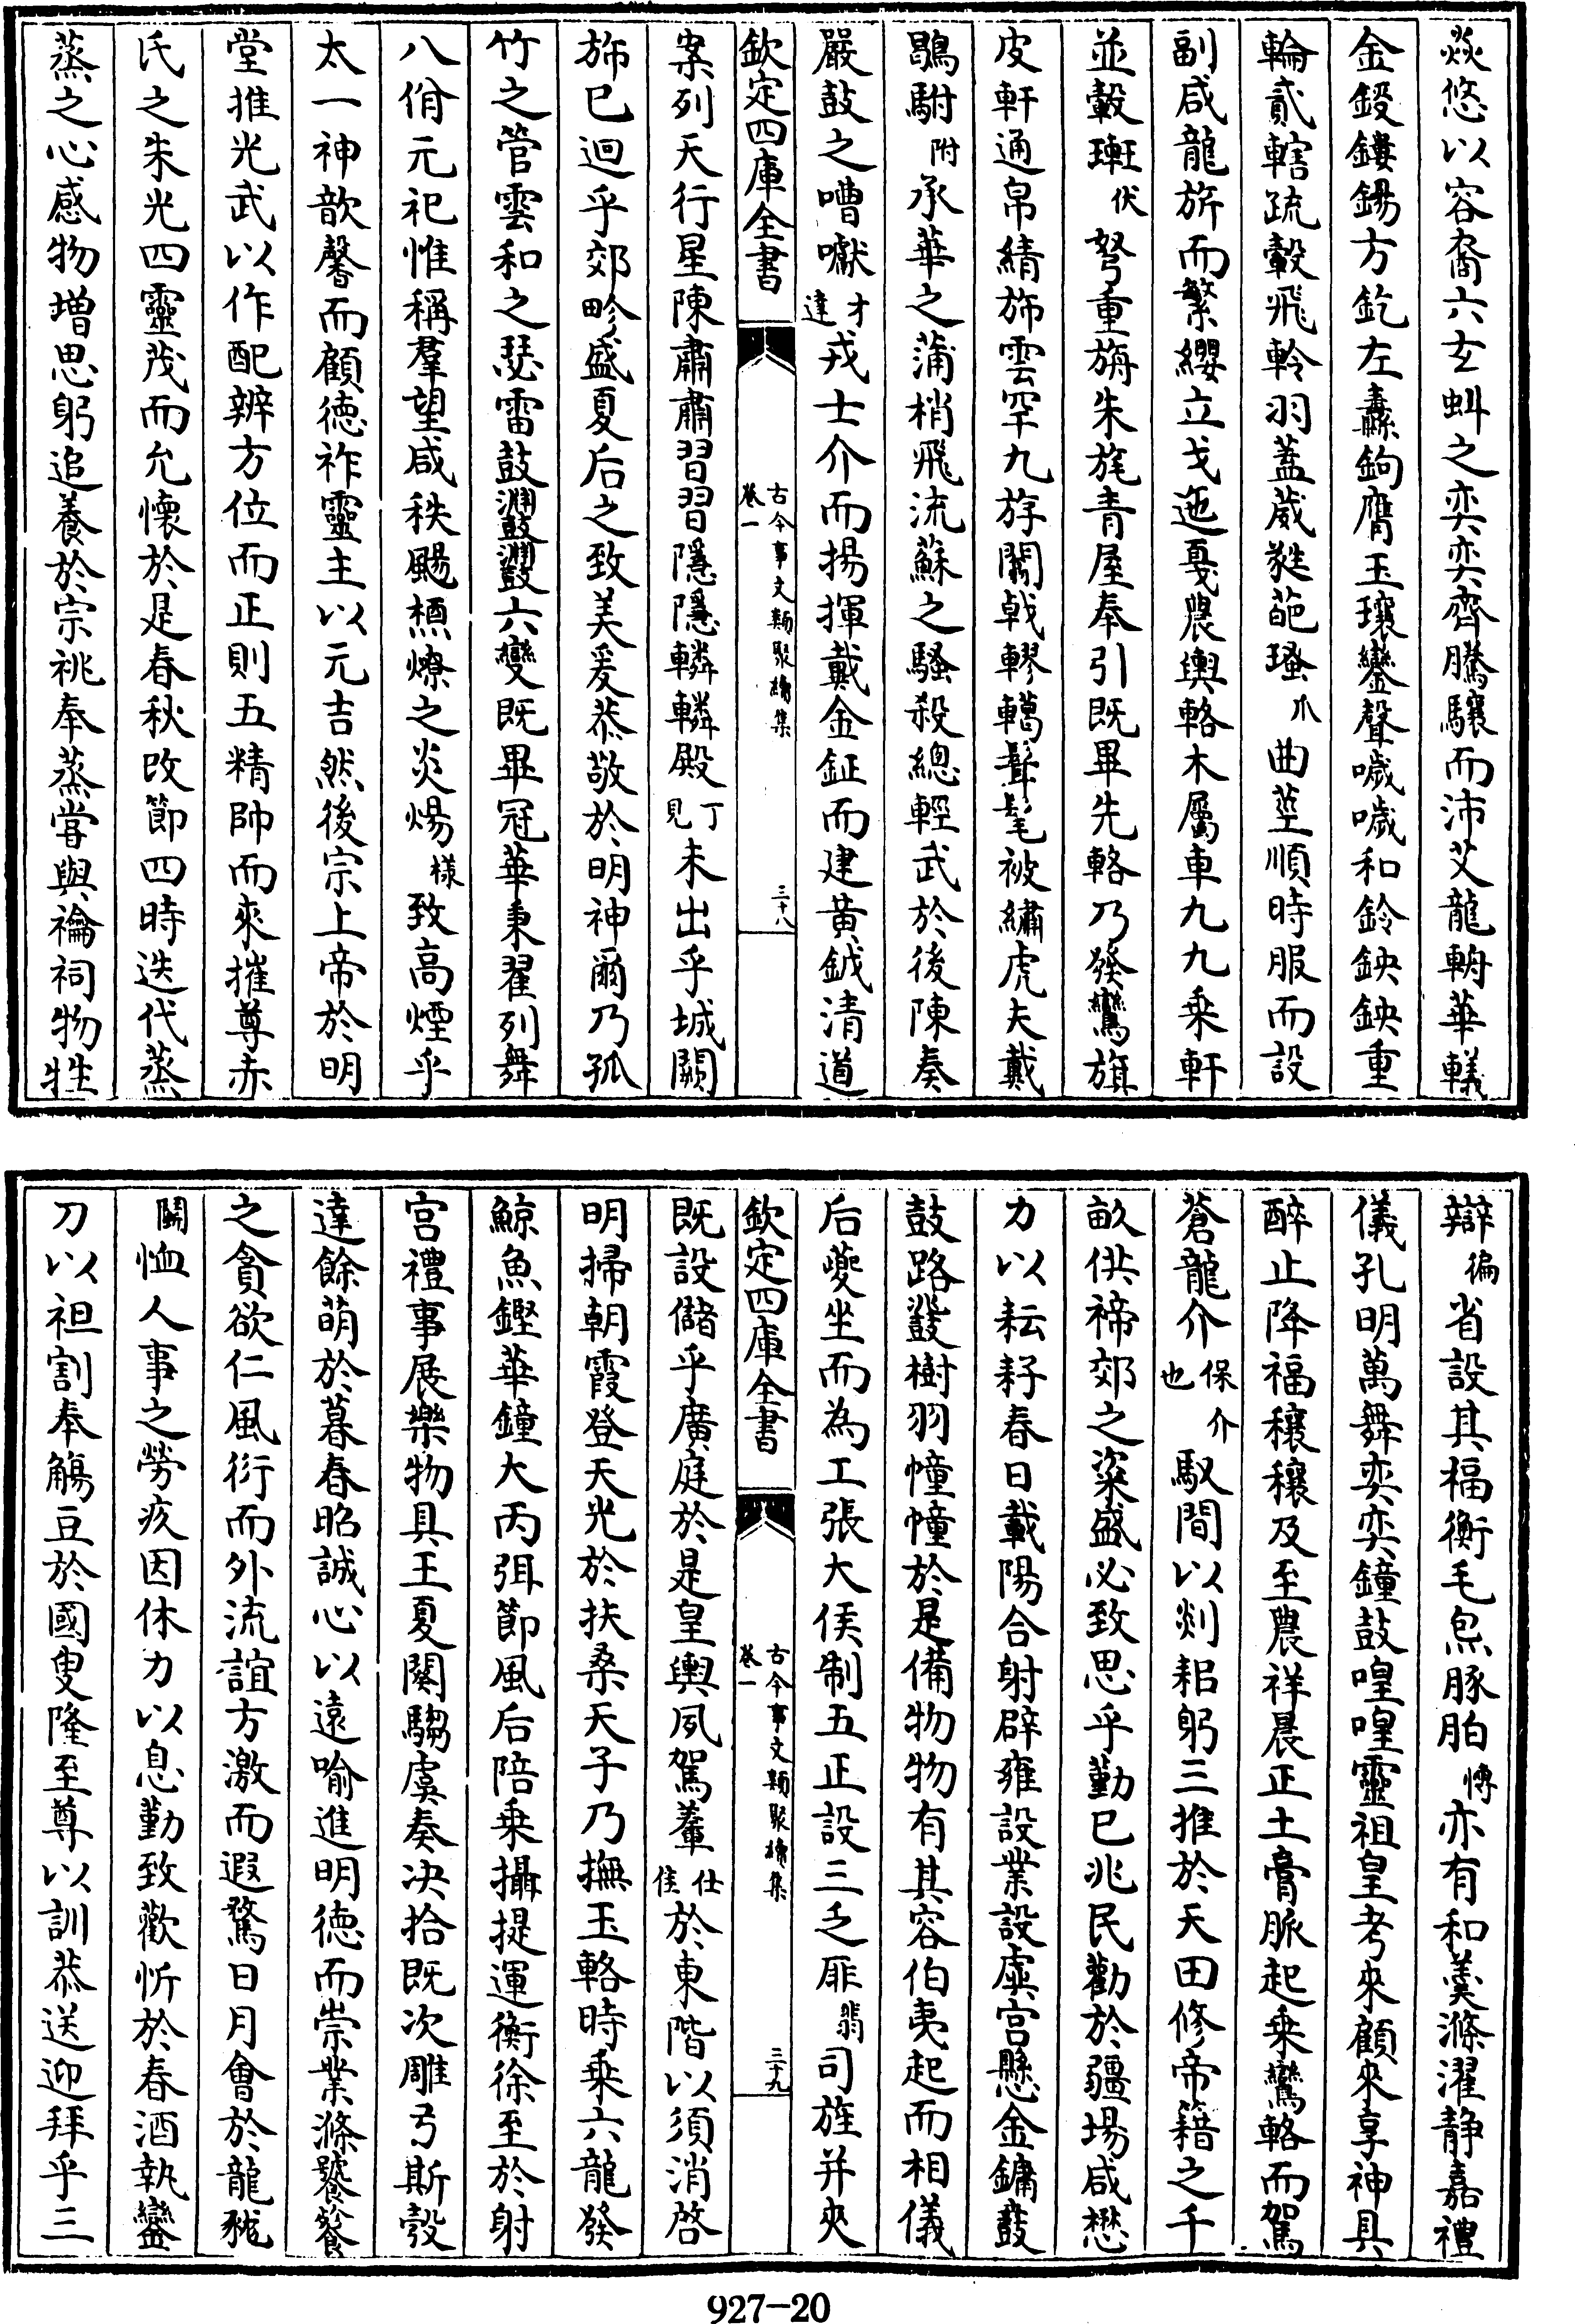 焱悠以容裔六玄虯之奕奕齊騰驤而沛艾龍輈華轙
金鋄鏤鍚方釳左纛鉤膺玉瓖鑾聲噦噦和鈴鉠鉠重
輪貳轄疏轂飛軨羽蓋葳蕤葩瑵爪曲莖順時服而設
副咸龍旂而繁纓立戈迤戛農輿輅木屬車九九乘軒
並轂㻎伏弩重旃朱旄青屋奉引既畢先輅乃發鸞旗
皮軒通帛綪斾雲罕九斿闟戟轇轕髶髦被繡虎夫戴
鶡駙附承華之蒲梢飛流蘇之騷殺總輕武於後陳奏
嚴鼓之嘈囐才達戎士介而揚揮戴金鉦而建黃鉞清道
欽定四庫全書 古今事文類聚續集卷一 三十八
案列天行星陳肅肅習習隱隱轔轔殿丁見未出乎城闕
斾已迴乎郊畛盛夏后之致美爰恭敬於明神爾乃孤
竹之管雲和之瑟雷鼓鼝鼝六變既畢冠華秉翟列舞
八佾元祀惟稱羣望咸秩颺槱燎之炎煬樣致高煙乎
太一神歆馨而顧德祚靈主以元吉然後宗上帝於明
堂推光武以作配辨方位而正則五精帥而來摧尊赤
氏之朱光四靈茂而允懷於是春秋改節四時迭代蒸
蒸之心感物增思躬追養於宗祧奉蒸嘗與禴祠物牲
辯徧省設其福衡毛炰豚胉愽亦有和羹滌濯静嘉禮
儀孔明萬舞奕奕鐘鼓喤喤靈祖皇考來顧來享神具
醉止降福穰穰及至農祥晨正土膏脈起乘鸞輅而駕
蒼龍介保介也馭間以剡耜躬三推於天田修帝籍之千
畝供禘郊之粢盛必致思乎勤已兆民勸於疆場咸懋
力以耘耔春日載陽合射辟雍設業設虡宮懸金鏞鼖
鼓路鼗樹羽幢幢於是備物物有其容伯夷起而相儀
后夔坐而為工張大侯制五正設三乏厞翡司旌并夾
欽定四庫全書 古今事文類聚續集卷一 三十九
既設儲乎廣庭於是皇輿夙駕䡨仕佳於東階以須消啓
明掃朝霞登天光於扶桑天子乃撫玉輅時乘六龍發
鯨魚鏗華鐘大丙弭節風后陪乘攝提運衡徐至於射
宮禮事展樂物具王夏闋騶虞奏决拾既次雕弓斯彀
達餘萌於暮春昭誠心以遠喻進明德而崇業滌饕餮
之貪欲仁風衍而外流誼方激而遐騖日月會於龍狵
鬬恤人事之勞疚因休力以息勤致歡忻於春酒執鑾
刀以袒割奉觴豆於國叟隆至尊以訓恭送迎拜乎三
927-20